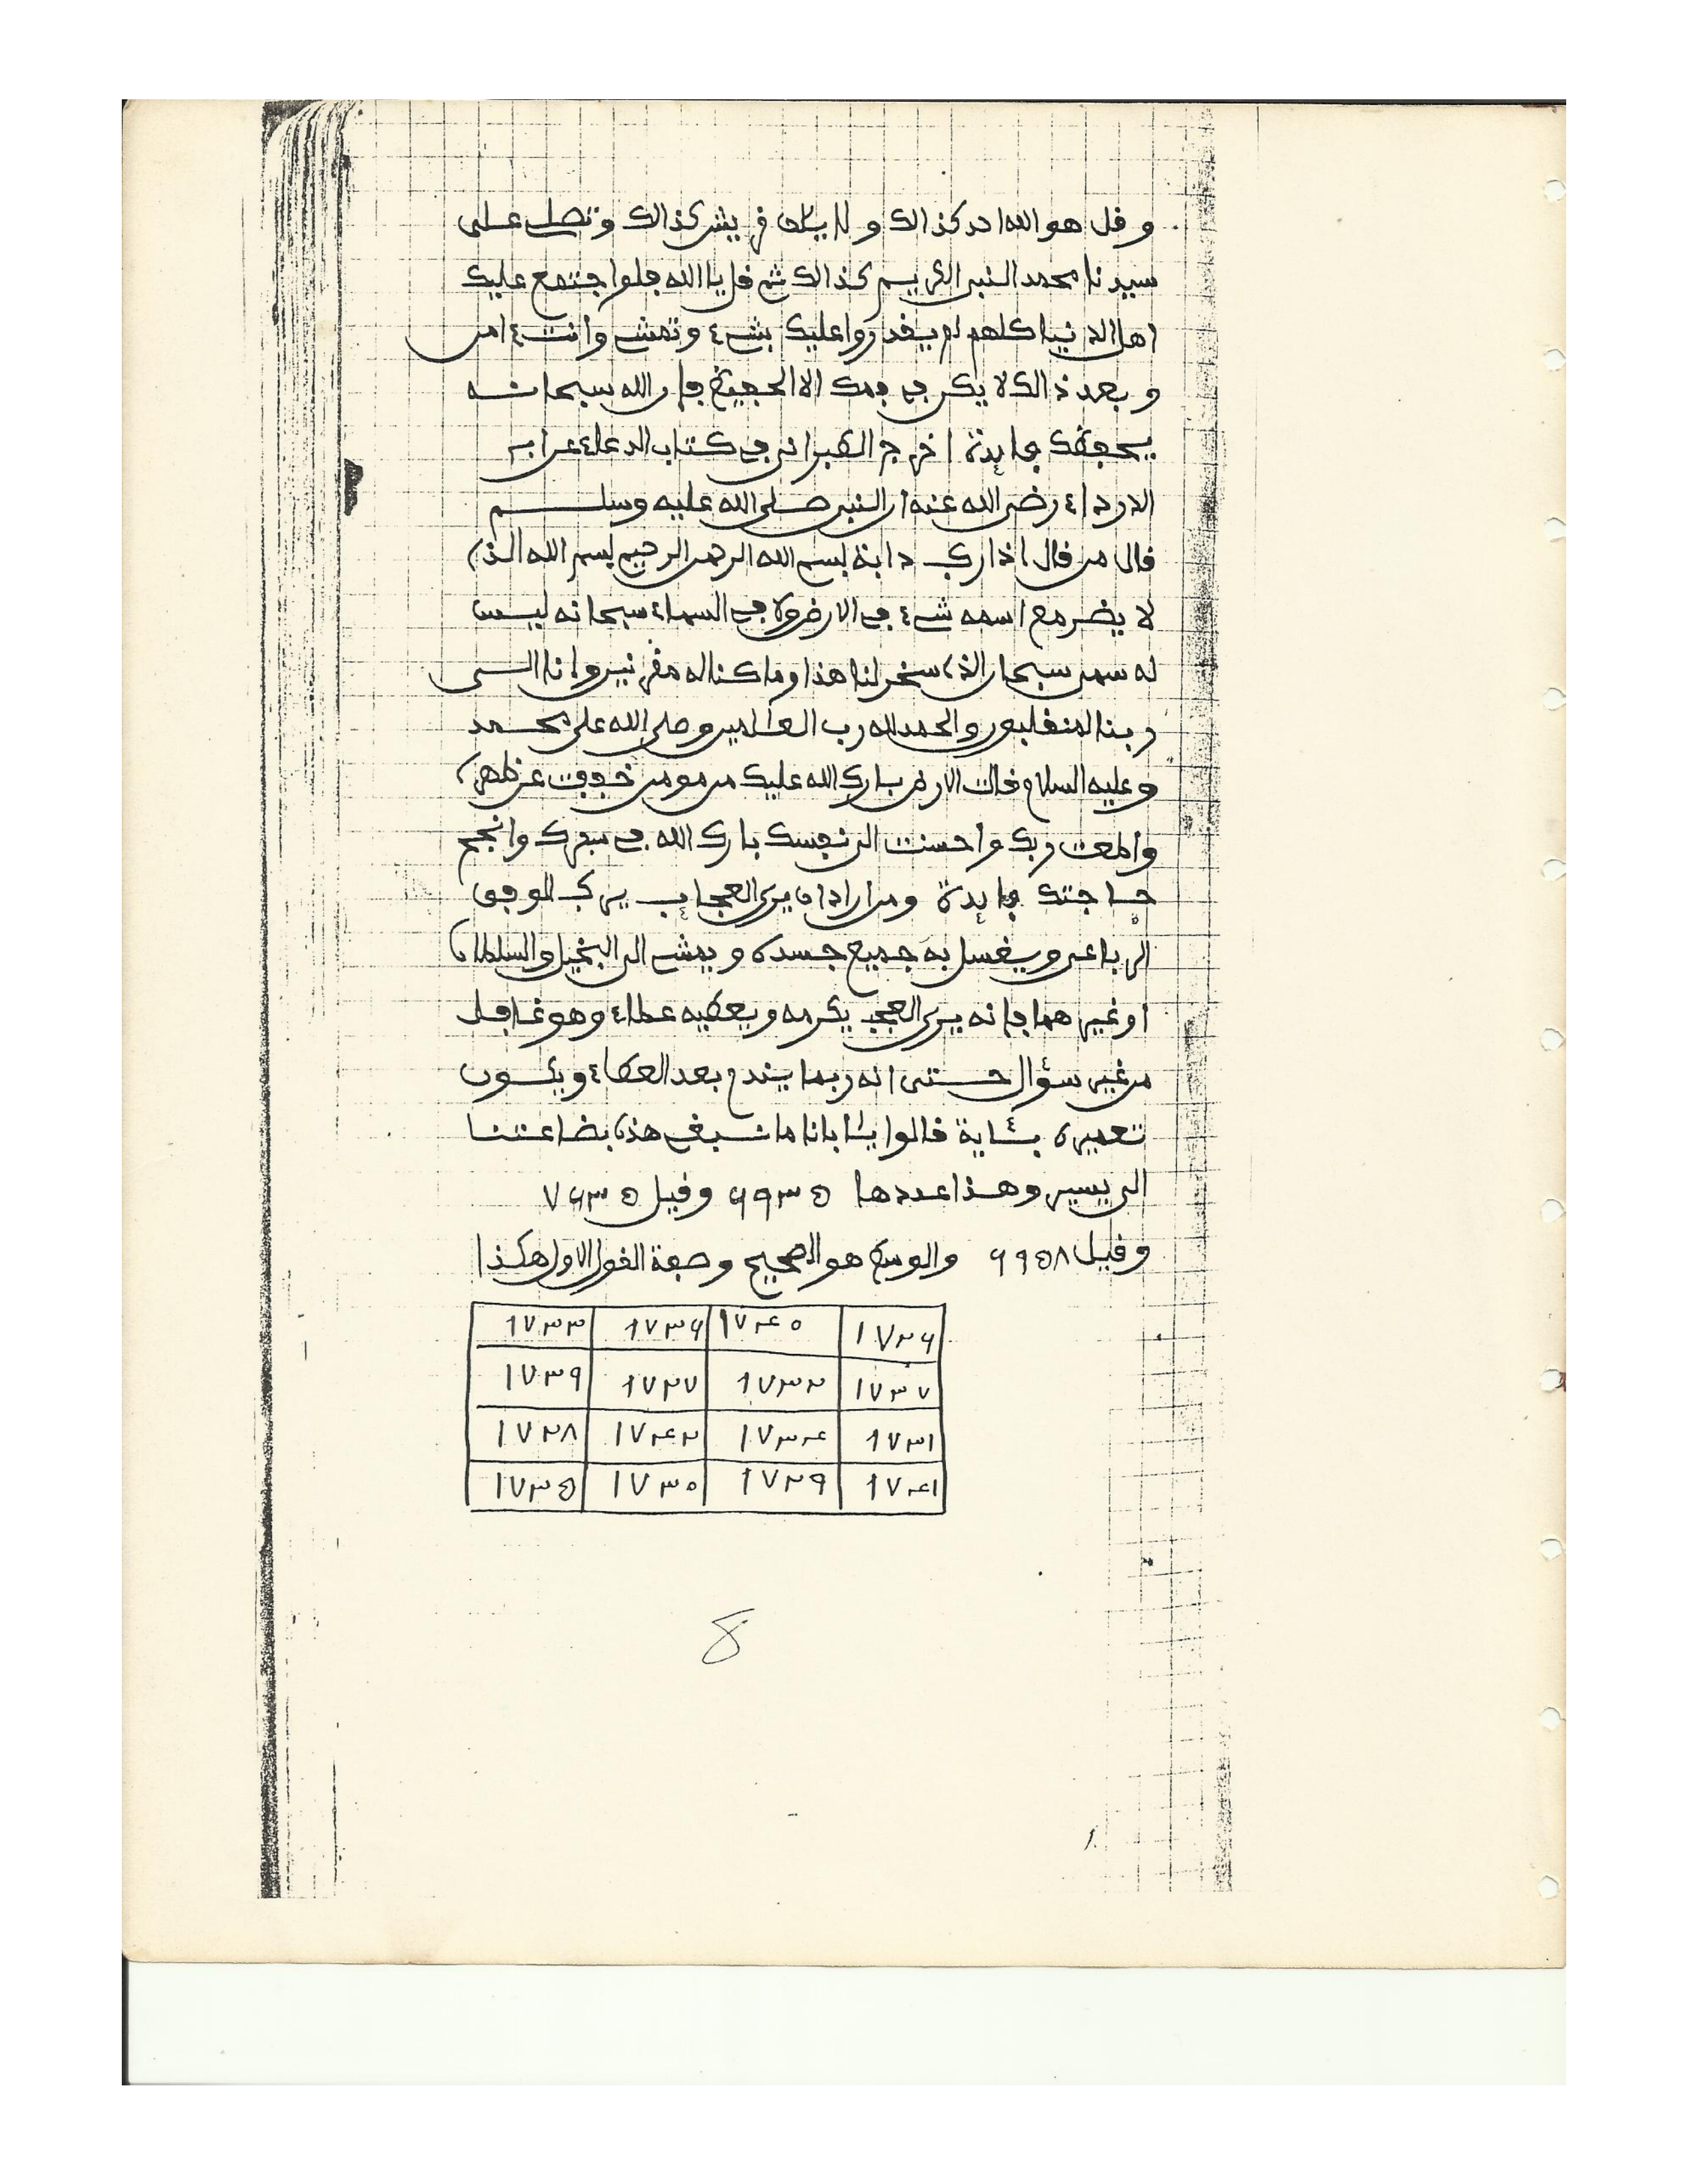 و قل هو الله احد كذالك و لايلاف قريش كذالك وتصل على
سيدنا محمد النبى الكريم كذالك ثم قل يا الله فلوا جتمع عليك
اهل الدنيا كلهم لم يقدروا عليك بشىء وتمشى وانت ءامن
و بعد ذالك لا يكن فى فمك الا الحفيظ فإن الله سبحانه
يحفظك فايدة اخرج الطبرانى فى كتاب الدعاء عن ابى
الدرداء رضى الله عنه ان النبى صلى الله عليه وسلم
قال من قال اذا ركب دابة بسم الله الرحمن الرحيم بسم الله الذى
لا يضر مع اسمه شىء فى الارض ولا فى السماء سبحانه ليس
له سمى سبحان الذى سخر لنا هذا وما كنا له مقرنين وانا الى
ربنا لمنقلبون والحمد لله رب العالمين وصلى الله على محمد
وعليه السلام قالت الارض بارك الله عليك من مومن خففت عن ظهرى
واطعت ربك واحسنت الى نفسك بارك الله فى سفرك وانجح
حاجتك فايدة ومن اراد ان يرى العجايب يركب الوفق
الرباعى ويغسل به جميع جسده ويمشى الى البخيل والسلطان
او غيرهما فإنه يرى العجب يكرمه ويعطيه عطاء وهو غافل
من غير سؤال حتى انه ربما يندم بعد العطاء ويكون
تعميره بئاية قالوا يئابانا ما نبغى هذه بضاعتنا
الى يسير وهذا عددها ٦٩٣٥ وقيل ٧٦٣٥
وقيل ٦٩٥٨ والوسط هو الصحيح وصفة القول الاول هكذا
١٧٣٣ ١٧٣٦ ١٧٤٠ ١٧٢٦
١٧٣٩ ١٧٢٧ ١٧٣٢ ١٧٣٧
١٧٢٨ ١٧٤٢ ١٧٣٤ ١٧٣١
١٧٣٥ ١٧٣٠ ١٧٢٩ ١٧٤١
8